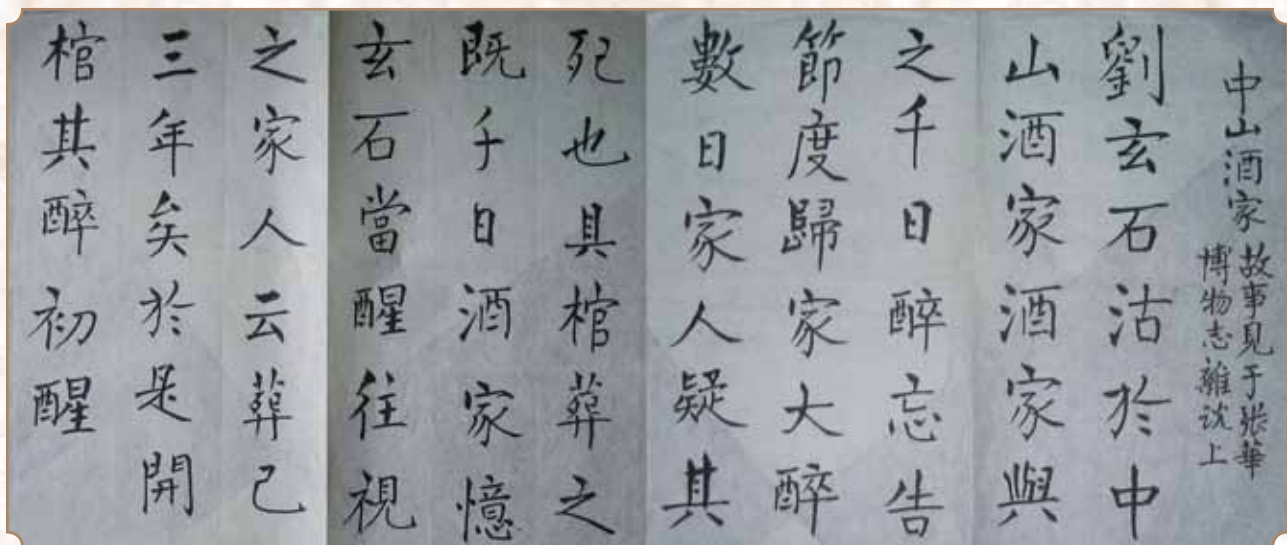 中山酒家
故事見于张華
博物志雜说上
劉玄石沽於中
山酒家酒家與
之千日醉忘告
節度歸家大醉
數日家人疑其
死也具棺葬之
既千日酒家憶
玄石當醒往視
之家人云葬已
三年矣於是開
棺其醉初醒